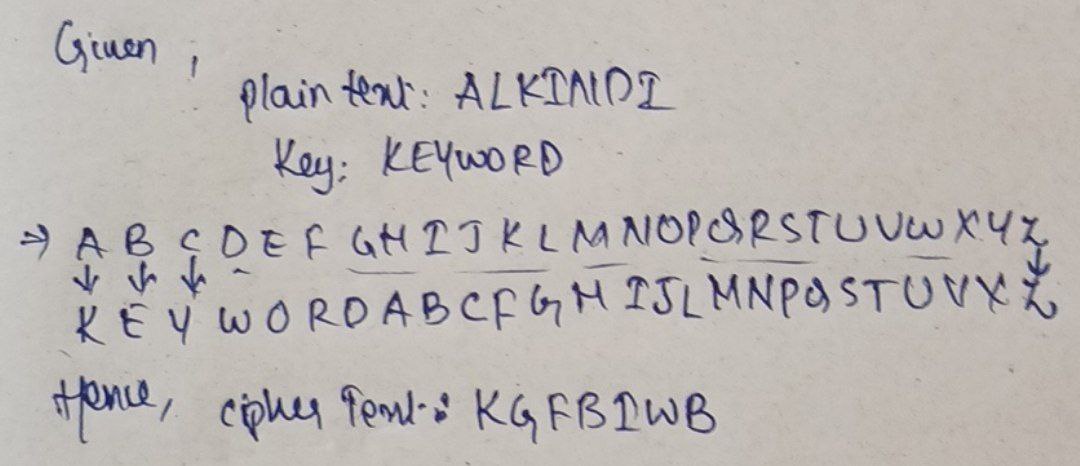 Given,
plain text: ALKINDI
Key: KEYWORD
⇒ A B C D E F G H I J K L M N O P Q R S T U V W X Y Z
↓ ↓ ↓ ↓
K E Y W O R D A B C F G H I J L M N P Q S T U V X Z
Hence, cipher Text: KGFBIWB